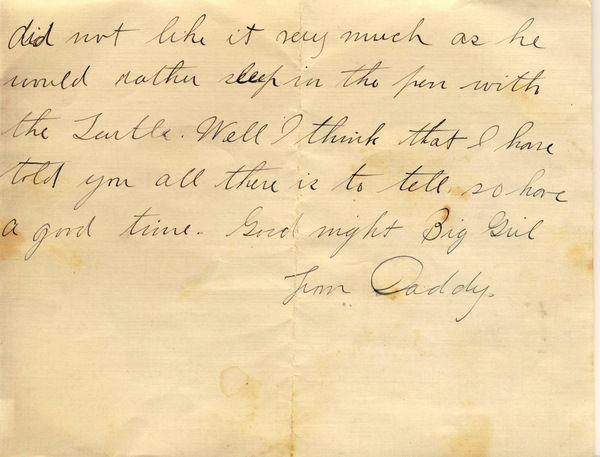 did not like it very much as he
would rather sleep in the pen with
the Turtle. Well I think that I have
told you all there is to tell so have
a good time. Good night Big Girl
from Daddy.